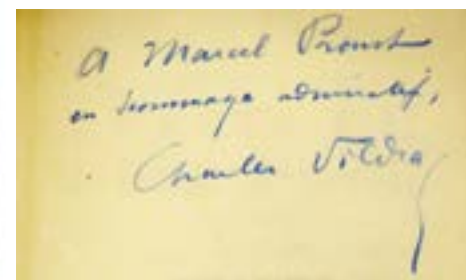 A Marcel Proust
en hommage admiratif,
Charles Vildrac